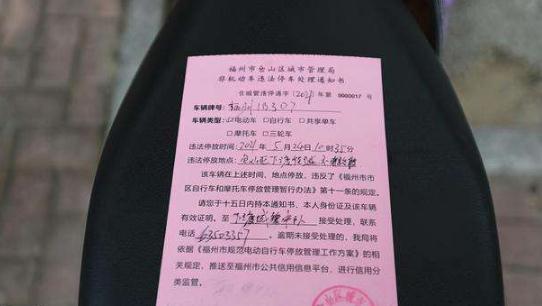 福州市仓山区城市管理局
非机动车违法停车处理通知书
仓城管违停通字〔2021〕年第 0000017 号
车辆牌号: 福州 1B307
车辆类型: ☑电动车 □自行车 □共享单车
□摩托车 □三轮车
违法停放时间: 2021 年 5 月 24 日 10 时 35 分
违法停放地点: 仓山区下渡
该车辆在上述时间、地点停放,违反了《福州市市
区自行车和摩托车停放管理暂行办法》第十一条的规定。
请您于十五日内持本通知书、本人身份证及该车辆
有效证明,至 下渡城管 接受处理,联系
电话 63503357 。逾期未接受处理的,我局将
依据《福州市规范电动自行车停放管理工作方案》的
相关规定,推送至福州市公共信用信息平台,进行信用分
类监管。